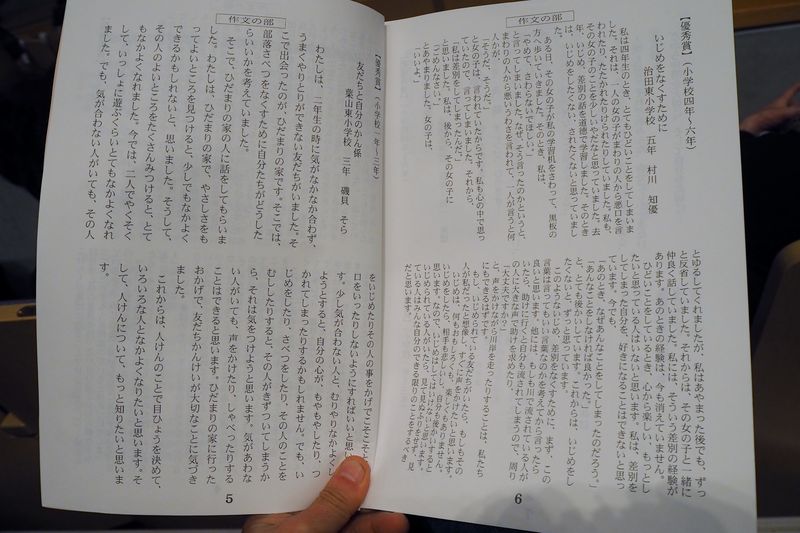 作文の部
【優秀賞】(小学校一年~三年)
友だちと自分のかん係
葉山東小学校 三年 磯貝 そら
わたしは、二年生の時に気がなかなか合わず、
うまくやりとりができない友だちがいました。そ
こで出会ったのが、ひだまりの家です。そこでは、
部落さべつをなくすために自分たちがどうした
らいいかを考えていました。
そこで、ひだまりの家の人に話をしてもらいま
した。わたしは、ひだまりの家で、やさしさをも
ってよいところを見つけると、少しでもなかよく
できるかもしれないと、思いました。そうして、
その人のよいところをたくさんみつけると、とて
もなかよくなれました。今では、二人でやくそく
して、いっしょに遊ぶくらいとてもなかよくなれ
ました。でも、気が合わない人がいても、その人
をいじめたりその人の事をかげでこそこそと
口をいったりしないようにすればいいと思い
す。少し気が合わない人と、むりやりなかよくし
ようとすると、自分の心が、もやもやしたり、つ
かれてしまったりするかもしれません。でも、い
じめをしたり、さべつをしたり、その人のことを
むししたりすると、その人がきずついてしまうか
ら、それは気をつけようと思います。気があわな
い人がいても、声をかけたり、しゃべったりする
ことはできると思います。ひだまりの家に行った
おかげで、友だちかんけいが大切なことに気づき
ました。
これからは、人けんのことで目ひょうを決めて、
いろいろな人となかよくなりたいと思います。そ
して、人けんについて、もっと知りたいと思いま
す。
5
作文の部
【優秀賞】(小学校四年~六年)
いじめをなくすために
治田東小学校 五年 村川 知優
私は四年生のとき、とてもひどいことをしてしまいま
した。それは、一人の女の子がまわりの人から悪口を言
われたり、たたかれたりけられたりしていました。私も、
その女の子のことを少しいやだなと思っていました。去
年、いじめ、差別の話を道徳で学習しました。そのとき
は、いじめをしたくない、されたくないと思っていまし
た。
ある日、その女の子が私の学習机をさわって、黒板の
方へ歩いていきました。そのとき、私は、
「やめて、さわらないでほしい。」
と言ってしまいました。なぜ、そう言ったのかというと、
まわりの人から悪いうわさを言われて、一人が言うと何
人かが、
「そうだ、そうだ。」
と女の子は、言われていたからです。私も心の中で思っ
ていたので、言ってしまいました。それから、
「私は差別をしてしまったんだ。」
と思いました。私は、後から、その女の子に
「ごめんなさい。」
とあやまりました。女の子は、
「いいよ。」
とゆるしてくれましたが、私はあやまった後でも、ずっ
と反省していました。それからは、その女の子と一緒に
仲良く話していました。私には、そういう差別の経験が
あります。あのときの経験は、今も消えていません。
ひどいことをしているとき、心から楽しい、もっとし
たいと思っている人はいないと思います。私は、差別を
してしまった自分を、好きになることはできないと思っ
ています。今でも、
「あのとき、なぜあんなことをしてしまったのだろう。」
「あんなことをしなければ良かった。」
と、とても後かいしています。これからは、いじめをし
たくないと、ずっと思っています。
このようないじめ、差別をなくすために、まず、この
言葉は言ってもいい言葉なのかを考えてから言ったら
良いと思います。他には、もしも川で流されている人が
いたら、助けに行くと自分も流されてしまうので、周り
の人に大きな声で助けを求めたり、
「大丈夫ですか。」
と、声をかけながら川岸を走ったりすることは、私たち
にもできるはずです。
もしもいじめられている友だちがいたら、もしもその
人が私だったと想像し、すぐに声をかけたいと思います。
いじめは、何もおもしろくも、楽しくもありません。
いじめをしたら、相手も悲しいし、自分も後かいすると
思います。なので、いじめはしてはいけないと思います。
いじめられている人がいたら、見て見ぬふりをせず、見
ている人はみんな自分のできる限りのことをするべき
だと思います。
6